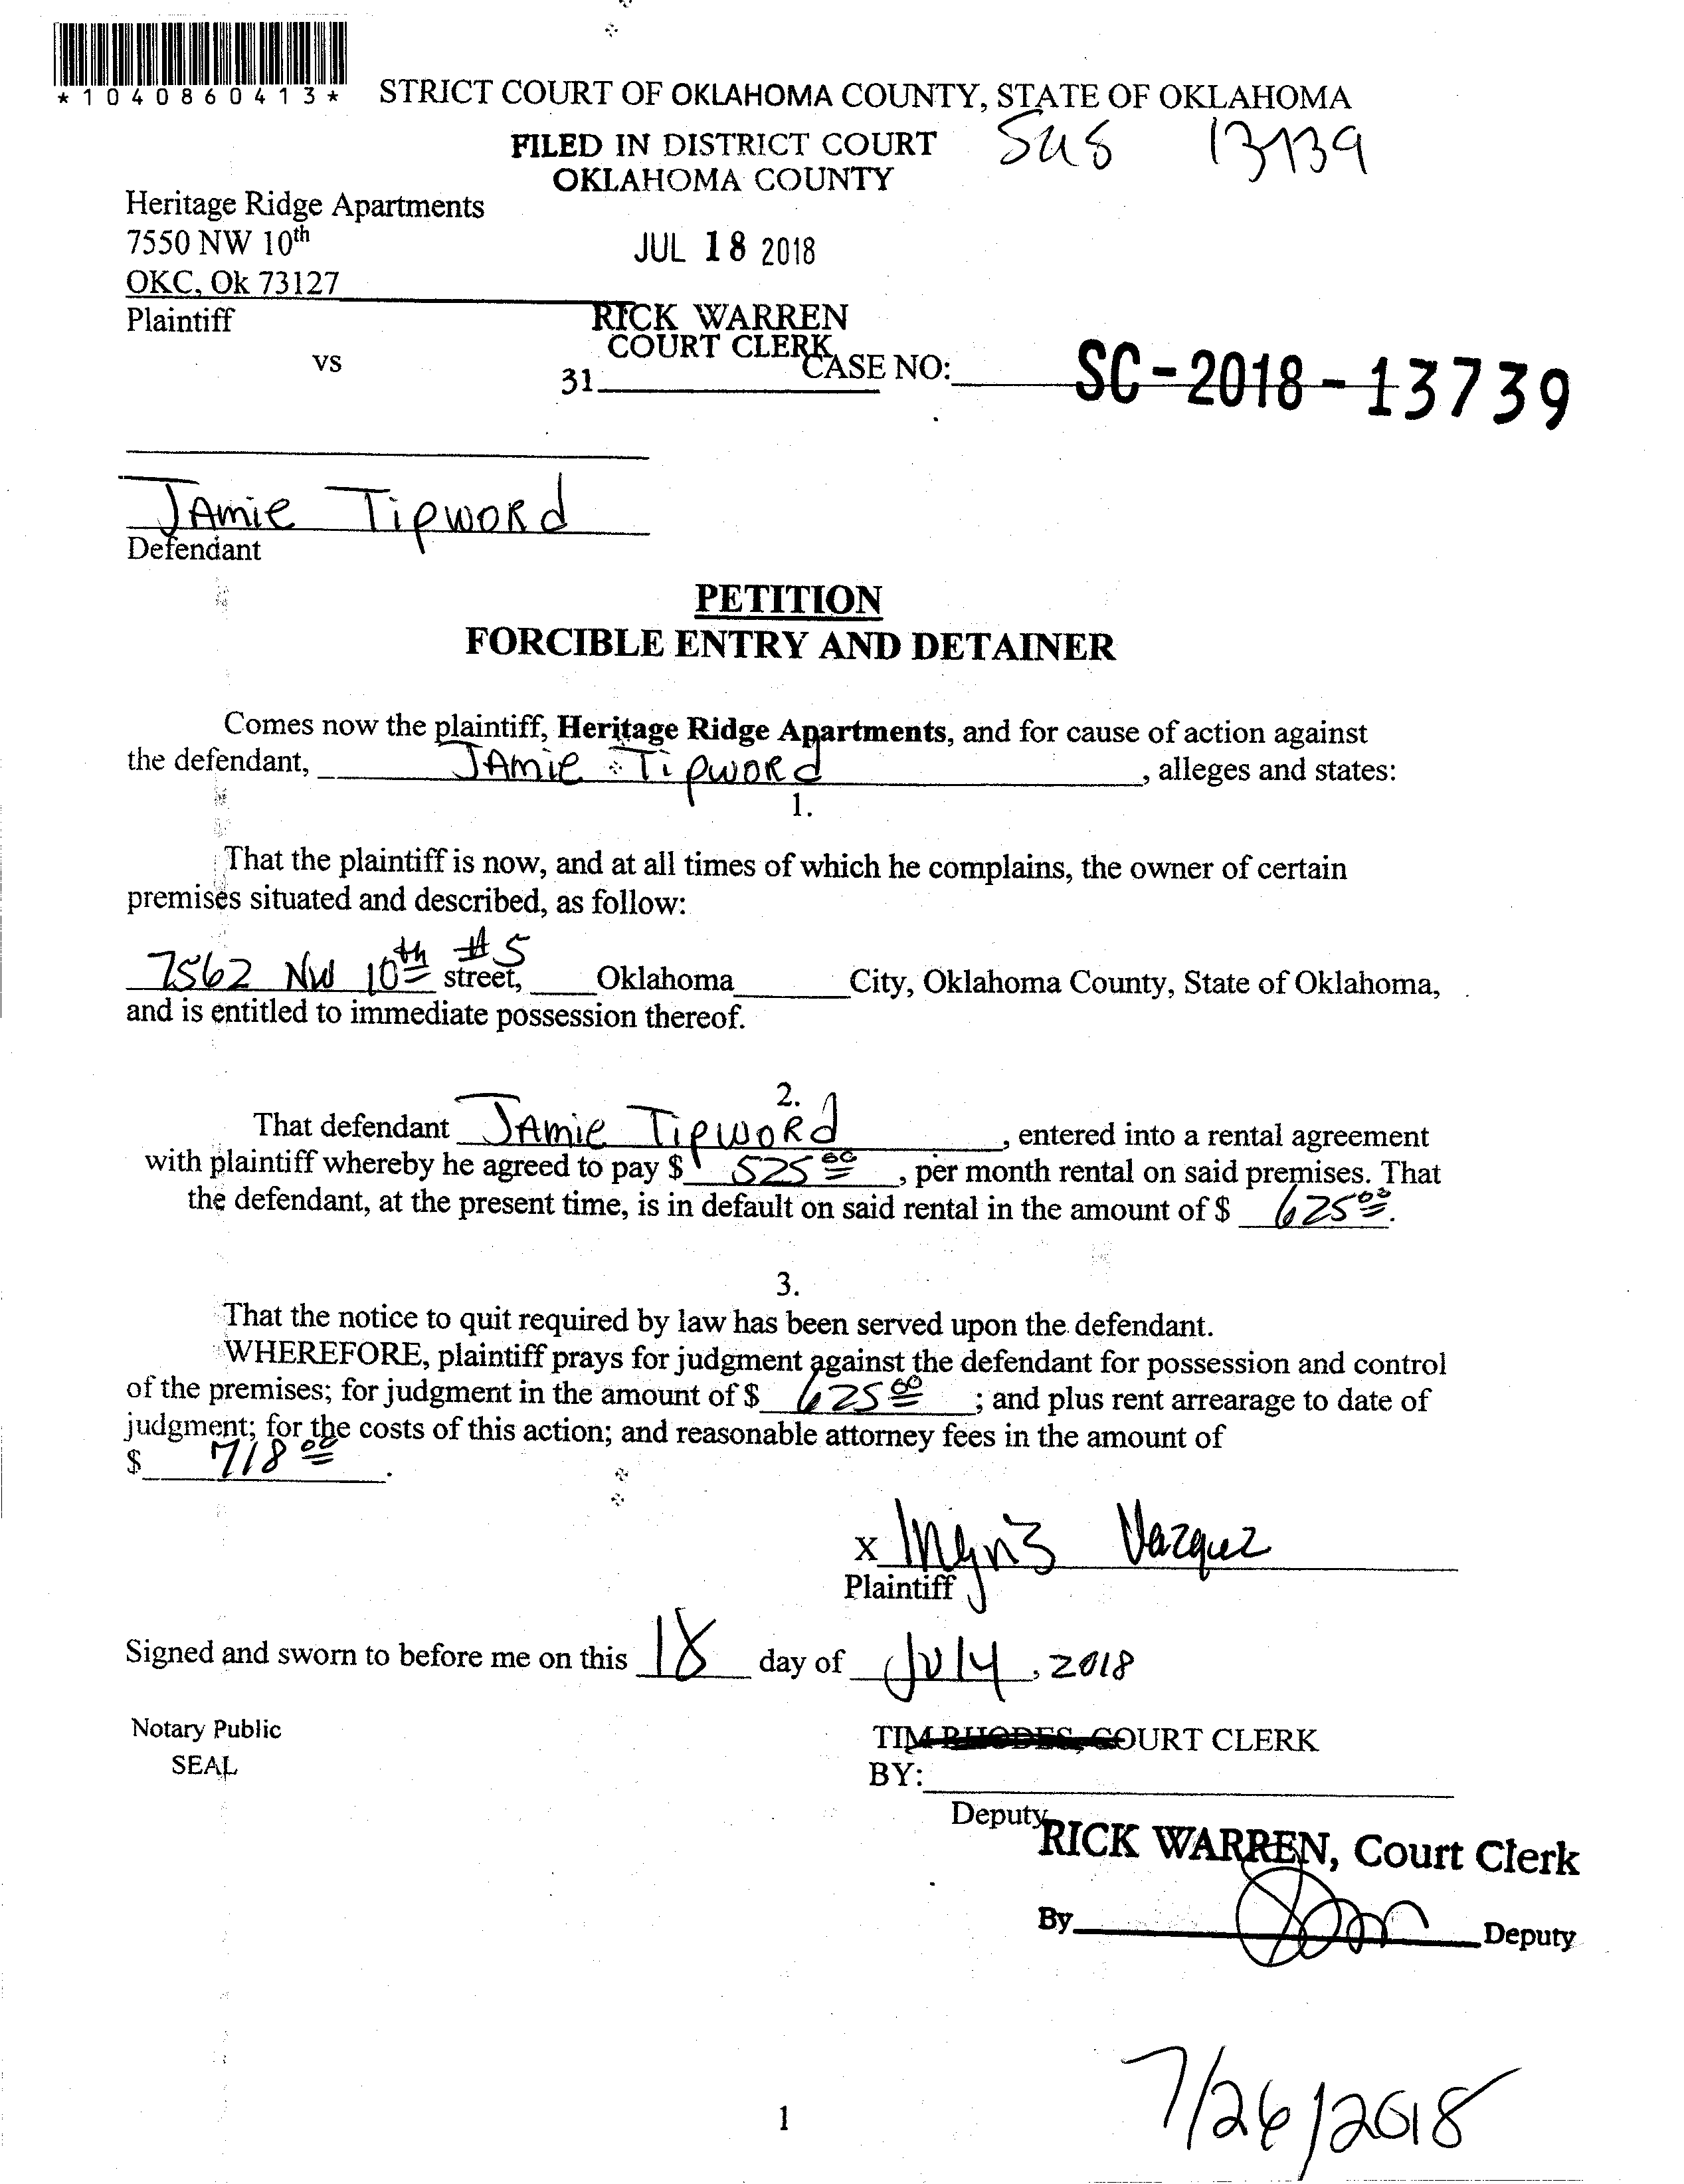 *1040860413*
STRICT COURT OF OKLAHOMA COUNTY, STATE OF OKLAHOMA
FILED IN DISTRICT COURT
OKLAHOMA COUNTY
Heritage Ridge Apartments
7550 NW 10th
JUL 18 2018
OKC, Ok 73127
Plaintiff
RICK WARREN
COURT CLERK
vs
31
CASE NO: SC-2018-13739
JAmie TipwoRd
Defendant
PETITION
FORCIBLE ENTRY AND DETAINER
Comes now the plaintiff, Heritage Ridge Apartments, and for cause of action against
the defendant, JAmie TipwoRd, alleges and states:
1.
That the plaintiff is now, and at all times of which he complains, the owner of certain
premises situated and described, as follow:
7562 NW 10th #5 street, Oklahoma City, Oklahoma County, State of Oklahoma,
and is entitled to immediate possession thereof.
2.
That defendant JAmie TipwoRd, entered into a rental agreement
with plaintiff whereby he agreed to pay $ 525 00, per month rental on said premises. That
the defendant, at the present time, is in default on said rental in the amount of $ 625 00.
3.
That the notice to quit required by law has been served upon the defendant.
WHEREFORE, plaintiff prays for judgment against the defendant for possession and control
of the premises; for judgment in the amount of $ 625 00; and plus rent arrearage to date of
judgment; for the costs of this action; and reasonable attorney fees in the amount of
$ 718 00.
x Vazquez
Plaintiff
Signed and sworn to before me on this 18 day of July, 2018
Notary Public
SEAL
TIM RHODES, COURT CLERK
BY:
Deputy
RICK WARREN, Court Clerk
By Deputy
7/26/2018
1